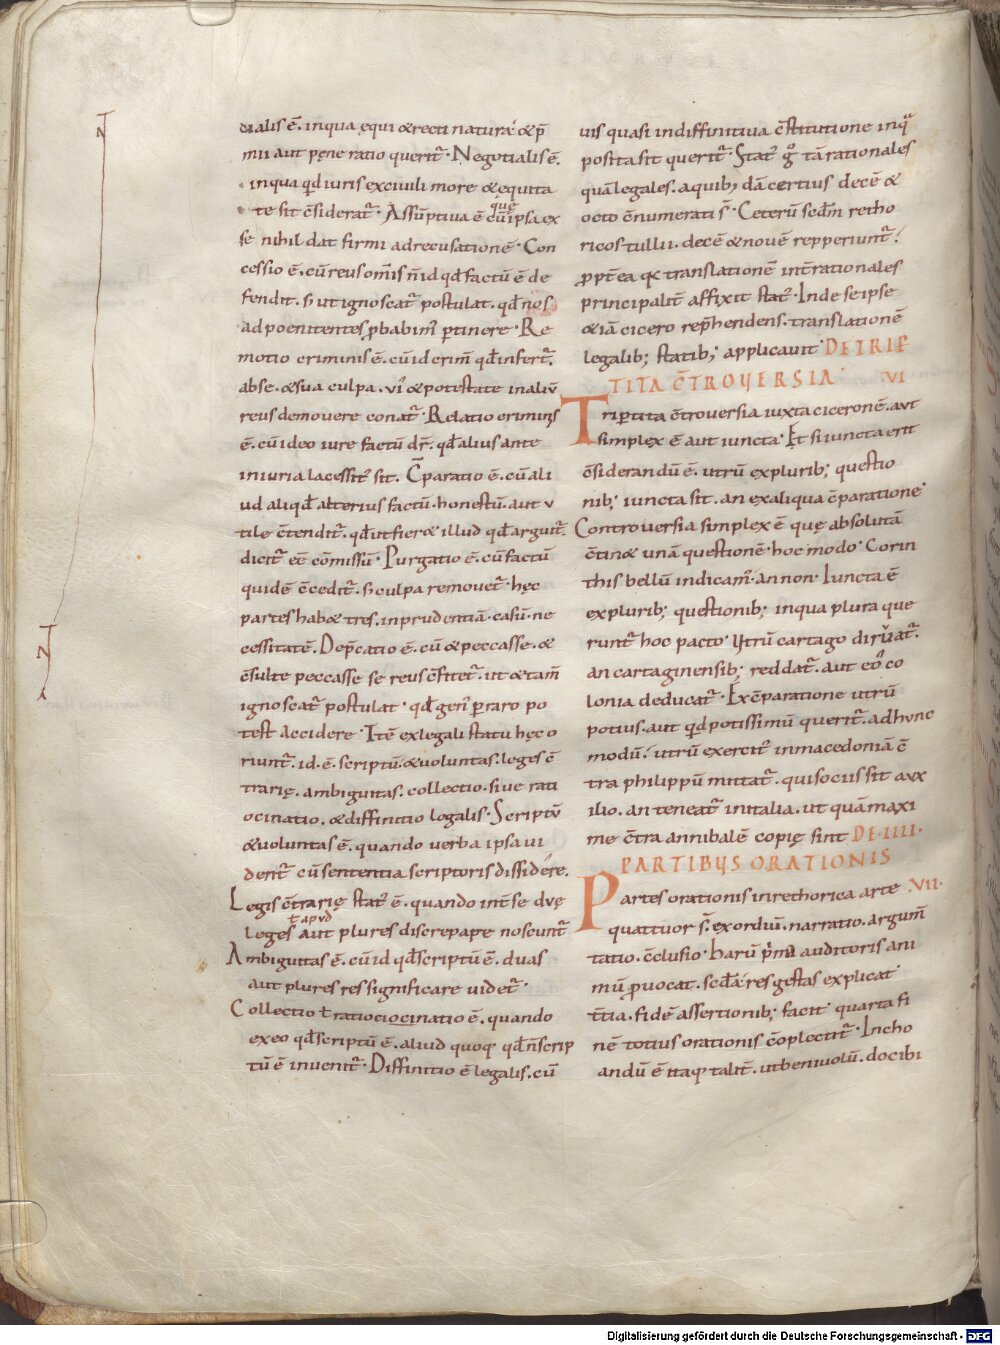 dialis ē. in qua ęqui & recti natura & p̄
mii aut pęne ratio querit᷑. Negotialis ē.
in qua qͥd iuris ex ciuili more & equita
te sit c̄siderat᷑. Assūptiua ē cū ipsa ex
quę
se nihil dat firmi ad recusationē. Con
cessio ē. cū reus om̄is n̄ id qd̄ factū ē de
fendit. s; ut ignoscat᷑ postulat. qd̄ nos
ad poenitentes ꝓbabim᷑ ꝑtinere. Re
motio criminis ē. cū id crim̄ qd̄ infert᷑.
ab se. & sua culpa. ui & potestate in aliū
reus demouere conat᷑. Relatio criminis
ē. cū ideo iure factū dr̄. qd̄ alius ante
iniuria lacessit᷑ sit. C̄paratio ē. cū ali
ud aliqd̄ alterius factū. honestū. aut u
tile c̄tendit᷑. qd̄ ut fier& illud qd̄ arguit᷑.
dicit᷑ eē cōmissū. Purgatio ē. cū factū
quidē c̄cedit᷑. s; culpa remouet᷑. hęc
partes hab& tres. inprudentiā. casū. ne
cessitatē. Dep̄catio ē. cū & peccasse. &
c̄sulte peccasse se reus c̄fitet᷑. ut & tam̄
ignoscat᷑ postulat. qd̄ gen᷑ ꝑraro po
test accidere. Itē ex legali statu hęc o
riunt᷑. id. ē. scriptū. & uoluntas. leges c̄
trarię. ambiguitas. collectio. siue rati
ocinatio. & diffinitio legalis. Scriptū
& uoluntas ē. quando uerba ipsa ui
dent᷑ cū sententia scriptoris dissidere.
Legis c̄trarię stat᷑ ē. quando int̄ se duę
ł apud
leges aut plures discrepape noscunt᷑
Ambiguitas ē. cū id qd̄ scriptū ē. duas
aut plures res significare uidet᷑.
Collectio ł ratiociocinatio ē. quando
ex eo qd̄ scriptū ē. aliud quoq; qd̄ n̄ scrip
tū ē inuenit᷑. Diffinitio ē legalis. cū
uis quasi in diffinitiua c̄stitutione in qͣ
posita sit querit᷑. Stat᷑ gͦ tā rationales
quā legales. a quib; dā certius decē &
octo ēnumerati s̄. Ceterū scdm̄ retho
ricos tullii. decē & nouē repperiunt᷑.
ꝓpt̄ea qͥa translationē int̄ rationales
principalit̄ affixit stat᷑. Inde se ipse
& iā cicero rep̄hendens. translationē
legalib; statib; applicauit. DE TRIP
TITA C̄TROUERSIA. VI
Triꝑtita c̄trouersia iuxta ciceronē. aut
simplex ē aut iuncta. Et si iuncta erit
c̄siderandū ē. utrū ex plurib; questio
nib; iuncta sit. an ex aliqua c̄paratione.
Controuersia simplex ē quę absolutā
c̄tin& unā questionē. hoc modo. Corin
this bellū indicam᷑. an non. Iuncta ē
ex plurib; questionib; in qua plura que
runt᷑ hoc pacto. Utrū cartago diruat᷑.
an cartaginensib; reddat᷑. aut eo co
lonia deducat᷑. Ex c̄paratione utrū
potius. aut qͥd potissimū querit᷑. ad hunc
modū. utrū exercit᷑ in macedoniā c̄
tra philippū mittat᷑. qui sociis sit aux
ilio. an teneat᷑ in italia. ut quā maxi
me c̄tra annibalē copię sint DE. IIII.
PARTIBUS ORATIONIS
Partes orationis in rethorica arte VII.
quattuor s̄. exordiū. narratio. argum̄
tatio. c̄clusio. Harū pͥma auditoris ani
mū ꝓuocat. scd̄a res gestas explicat.
t̄tia. fidē assertionib; facit. quarta fi
nē totius orationis c̄plectit᷑. Incho
andū ē itaq; talit̄. ut beniuolū. docibi
Digitalisierung gefördert durch die Deutsche Forschungsgemeinschaft - DFG